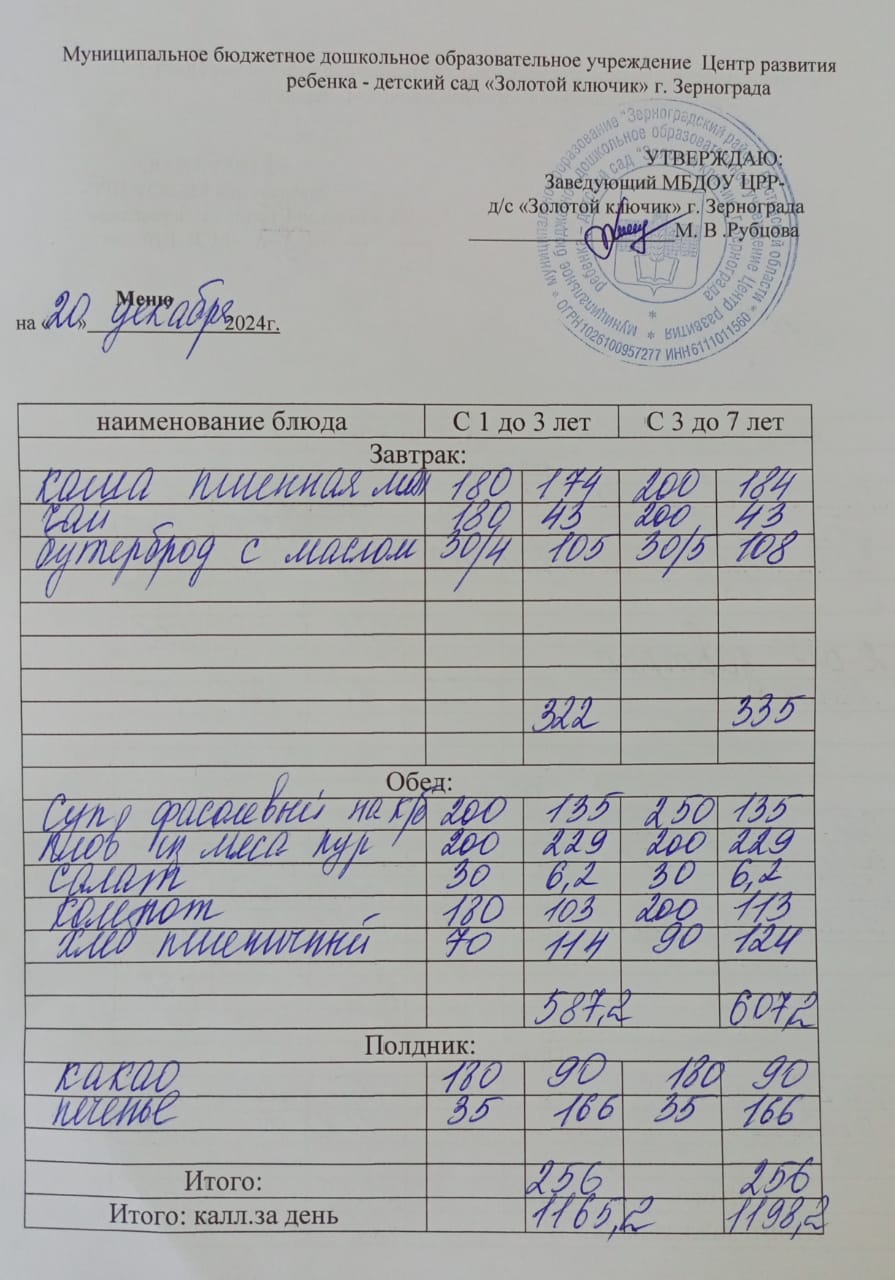 Муниципальное бюджетное дошкольное образовательное учреждение Центр развития
ребенка - детский сад «Золотой ключик» г. Зернограда
УТВЕРЖДАЮ:
Заведующий МБДОУ ЦРР-
д/с «Золотой ключик» г. Зернограда
М. В .Рубцова
ОГРН 1026100957277 ИНН 6111011560
Меню
на «20» декабря 2024г.
наименование блюда С 1 до 3 лет С 3 до 7 лет
Завтрак:
каша пшенная мол 180 174 200 184
чай 180 43 200 43
бутерброд с маслом 30/4 105 30/5 108
322 335
Обед:
Суп фасолевый на к/б 200 135 250 135
плов из мяса кур 200 229 200 229
салат 30 6,2 30 6,2
компот 180 103 200 113
хлеб пшеничный 70 114 90 124
587,2 607,2
Полдник:
какао 180 90 180 90
печенье 35 166 35 166
Итого: 256 256
Итого: калл.за день 1165,2 1198,2